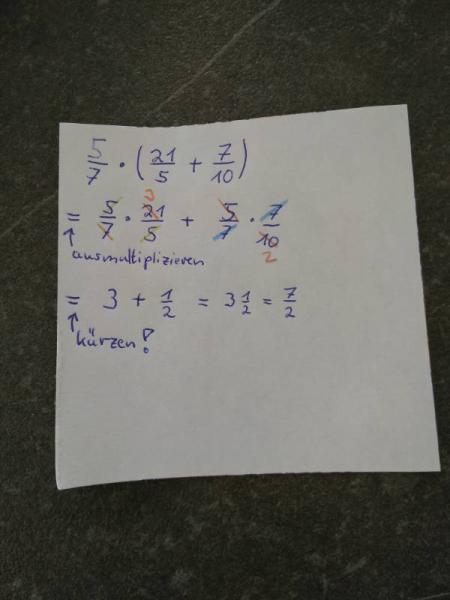 5/7 · (21/5 + 7/10)
= 5/7 · 21/5 + 5/7 · 7/10
ausmultiplizieren
2
= 3 + 1/2 = 3 1/2 = 7/2
kürzen!